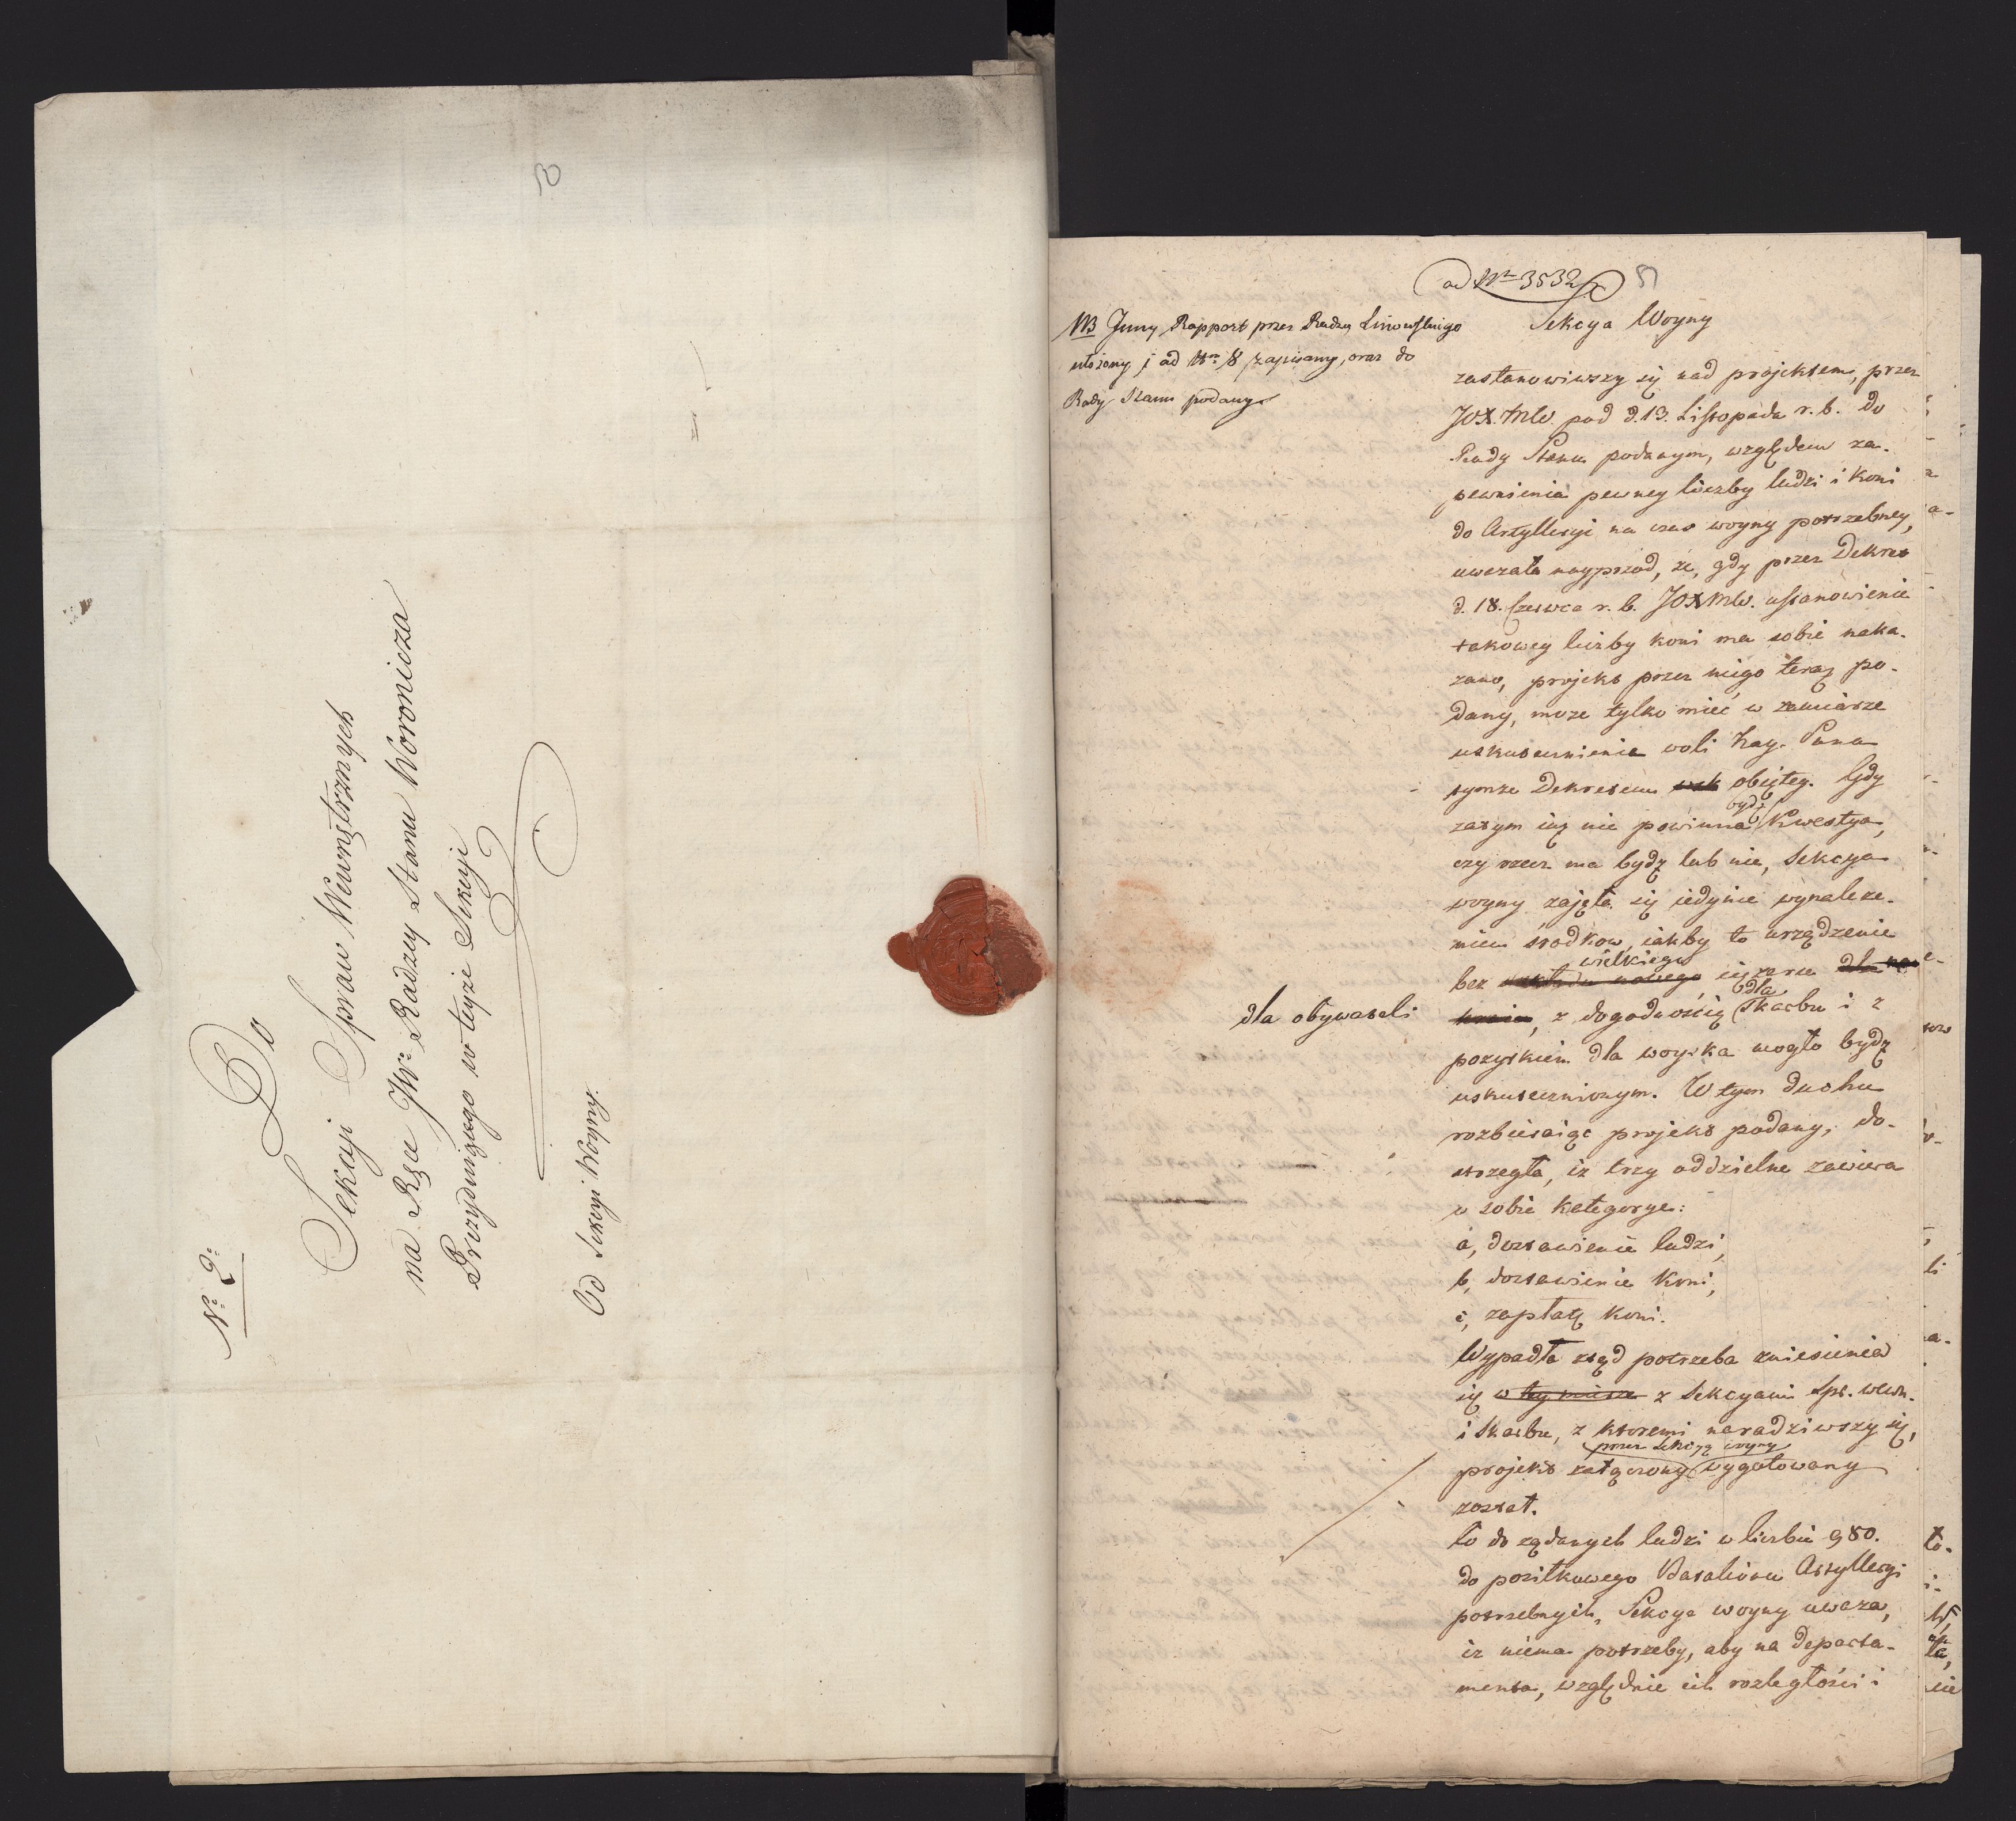 50
Nº 2º
Do
Sekcji Spraw Wewnętrznych
na Ręce JWº Radzcy Stanu Woronicza
Prezydującego w teyże Sekcyi
Od Sekcyi Woyny.
ad Nº 3532
51
NB Jnny Rapport przez Radzcę Linowskiego
ułożony i ad Nrm 8 zapisany, oraz do
Rady Stanu podany
Sekcya Woyny
zastanowiwszy się nad projektem, przez
JOX. Mw. pod d. 13. Listopada r. b. do
Rady Stanu podanym, względem za-
pewnienia pewney liczby ludzi i koni
do Artylleryi na czas woyny potrzebney,
uważała nayprzód, że, gdy przez Dekret
d. 18. Czerwca r. b. JOX Mw. ustanowienie
takowey liczby koni ma sobie naka-
zane, projekt przez niego teraz po-
dany, może tylko mieć w zamiarze
uskutecznienie woli Nay. Pana
tymże Dekretem objętey. Gdy
zatym iuż nie powinna bydź Kwestya,
czy rzecz ma bydź lub nie, Sekcya
woyny zajęła się iedynie wynaleze-
niem srodkow, iakby to urządzenie
bez wielkiego ciężaru
dla obywateli
, z dogodnością dla Skarbu i z
pozyskiem dla woyska mogło bydź
uskutecznionym. W tym duchu
rozbieraiąc projekt podany, do-
strzegła, iż trzy oddzielne zawiera
w sobie kategorye:
a, dostawienie ludzi,
b, dostawienie koni,
c, zapłatę koni.
Wypadła ztąd potrzeba zniesienia
się w tey mierze z Sekcyami Spr. Wewn.
i Skarbu, z ktoremi naradziwszy się,
projekt załączony przez Sekcyą woyny wygotowany
został.
Co do żądanych ludzi w liczbie 980.
do posiłkowego Batalionu Artylleryi
potrzebnych, Sekcya woyny uważa,
iż niema potrzeby, aby na departa-
menta, względnie ich rozległości i